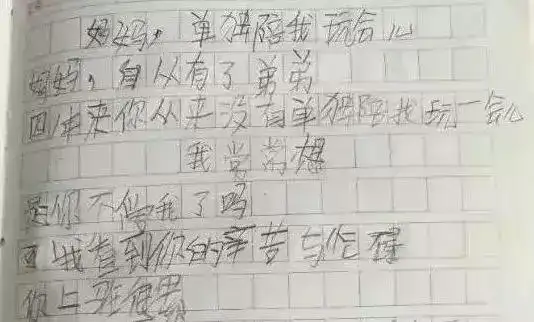 妈妈，单独陪我玩会儿
妈妈，自从有了弟弟
四年来你从来没有单独陪我玩一会儿
我常常想
是你不爱我了吗
可我看到你的辛苦与忙碌
你上班很累